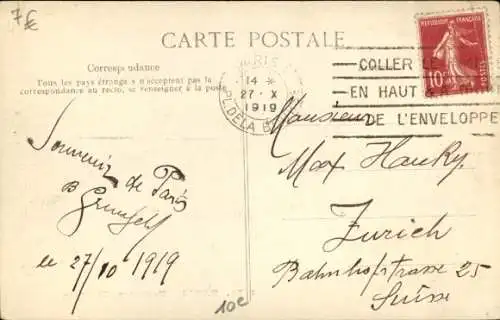 7€
CARTE POSTALE
Correspondance
Tous les pays étrangers n'acceptent pas la
correspondance au recto, se renseigner à la poste
REPUBLIQUE FRANÇAISE
10
POSTES
PARIS
14 *
27 · X
1919
PL. DE LA B
COLLER LE
EN HAUT
DE L'ENVELOPPE
Souvenir
de Paris
le 27/10 1919
Monsieur
Max
Zurich
Bahnhofstrasse 25
Suisse
10c